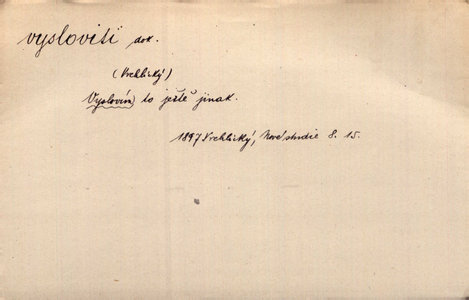 vysloviti dok.
(Vrchlický)
Vyslovím to ještě jinak.
1897 Vrchlický, Nové studie S. 15.